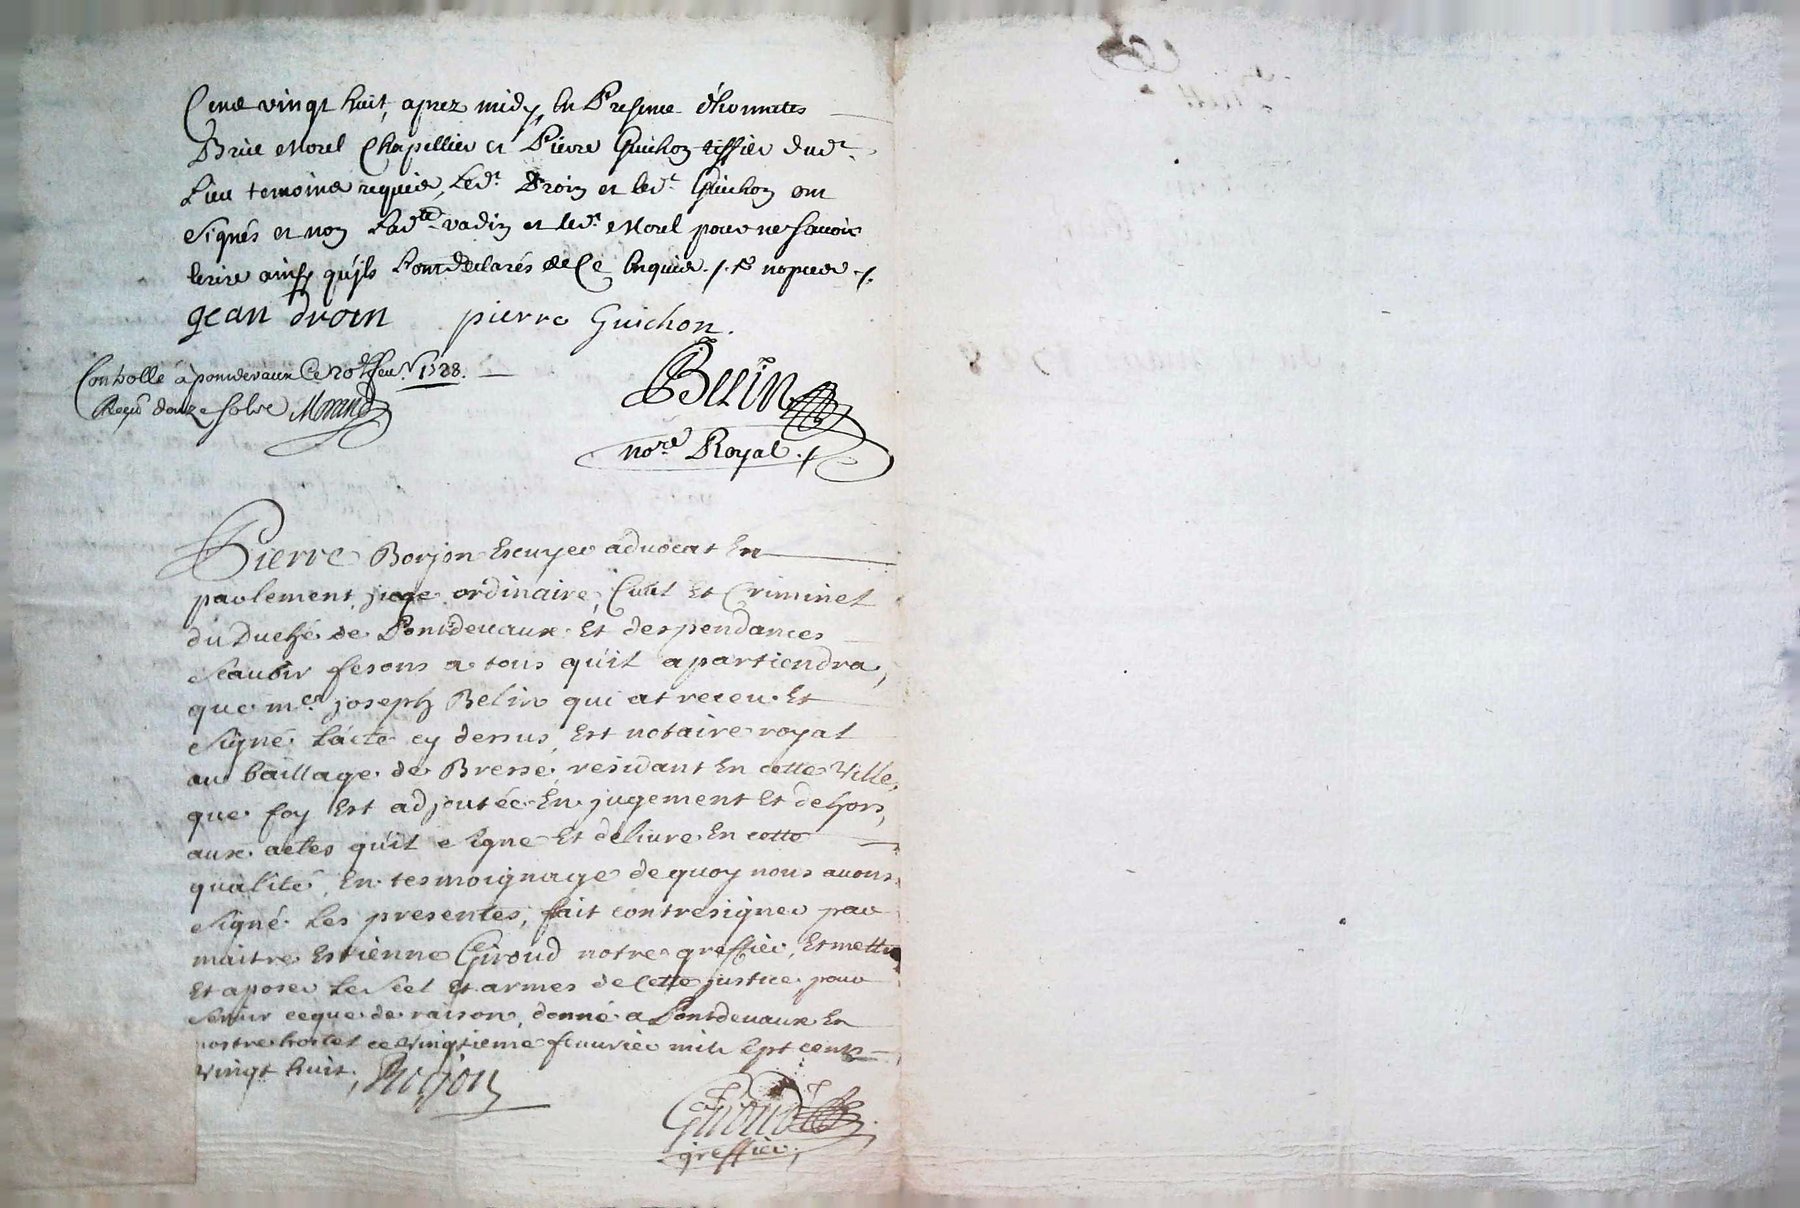 Cens vingt huit, aprez midy, en Presence d'honnetes
Brice Morel Chapellier et Pierre Guichon tissier dud.t
Lieu temoins requis, Led.t Droin et led.t Guichon ont
signés et non Lad.te vadin et led.t Morel pour ne sauoir
ecrire ainsy qu'jls L'ont declarés de Ce enquis ./.
gean droin pierre Guichon.
Controllé a pondevaux Ce 20.e feu.r 1728.
Reçu douze sols Morand
Belin
no.re Royal ./
Pierre Borjon Escuyer aduocat En
parlement, juge ordinaire, Ciuil Et Criminel
du Duché de Pontdeuaux Et despendances
scauoir fesons a tous qu'il apartiendra,
que m.e joseph Belin qui at receu Et
signé L'acte cy dessus, Est notaire royal
au baillage de Bresse, residant En cette Ville,
que foy Est adjoutée En jugement Et dehors,
aux actes qu'il signe Et deliure En cette
qualité, En tesmoignage de quoy nous auons
signé Les presentes, fait contresigner par
maitre Estienne Giroud notre greffier, Et mettre
Et aposer Le scel Et armes de Cette justice pour
seruir ce que de raison, donné a Pontdeuaux En
nostre hostel ce vingtieme feurier mil sept cents
vingt huit. Borjon
Giroud
greffier,